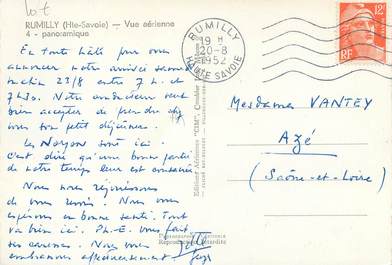 RUMILLY (Hte-Savoie) — Vue aérienne
4 - panoramique
En toute hâte pour vous
annoncer notre arrivée samedi
matin 23/8 entre 7 h. et
7h30. Notre conducteur veut
bien accepter de prendre chez
vous son petit déjeuner.
Les sont ici.
C'est dire qu'une bonne partie
de notre temps leur est consacrée.
Nous nous réjouissons
de vous revoir. Nous vous
espérons en bonne santé. Tout
va bien ici. Ph.-E. vous fait
ses caresses. Nous vous
embrassons affectueusement
RUMILLY
19 H
20-8
1952
HAUTE SAVOIE
12F
RF
Mesdames VANTEY
Azé
(Saône-et-Loire)
Reproduction interdite